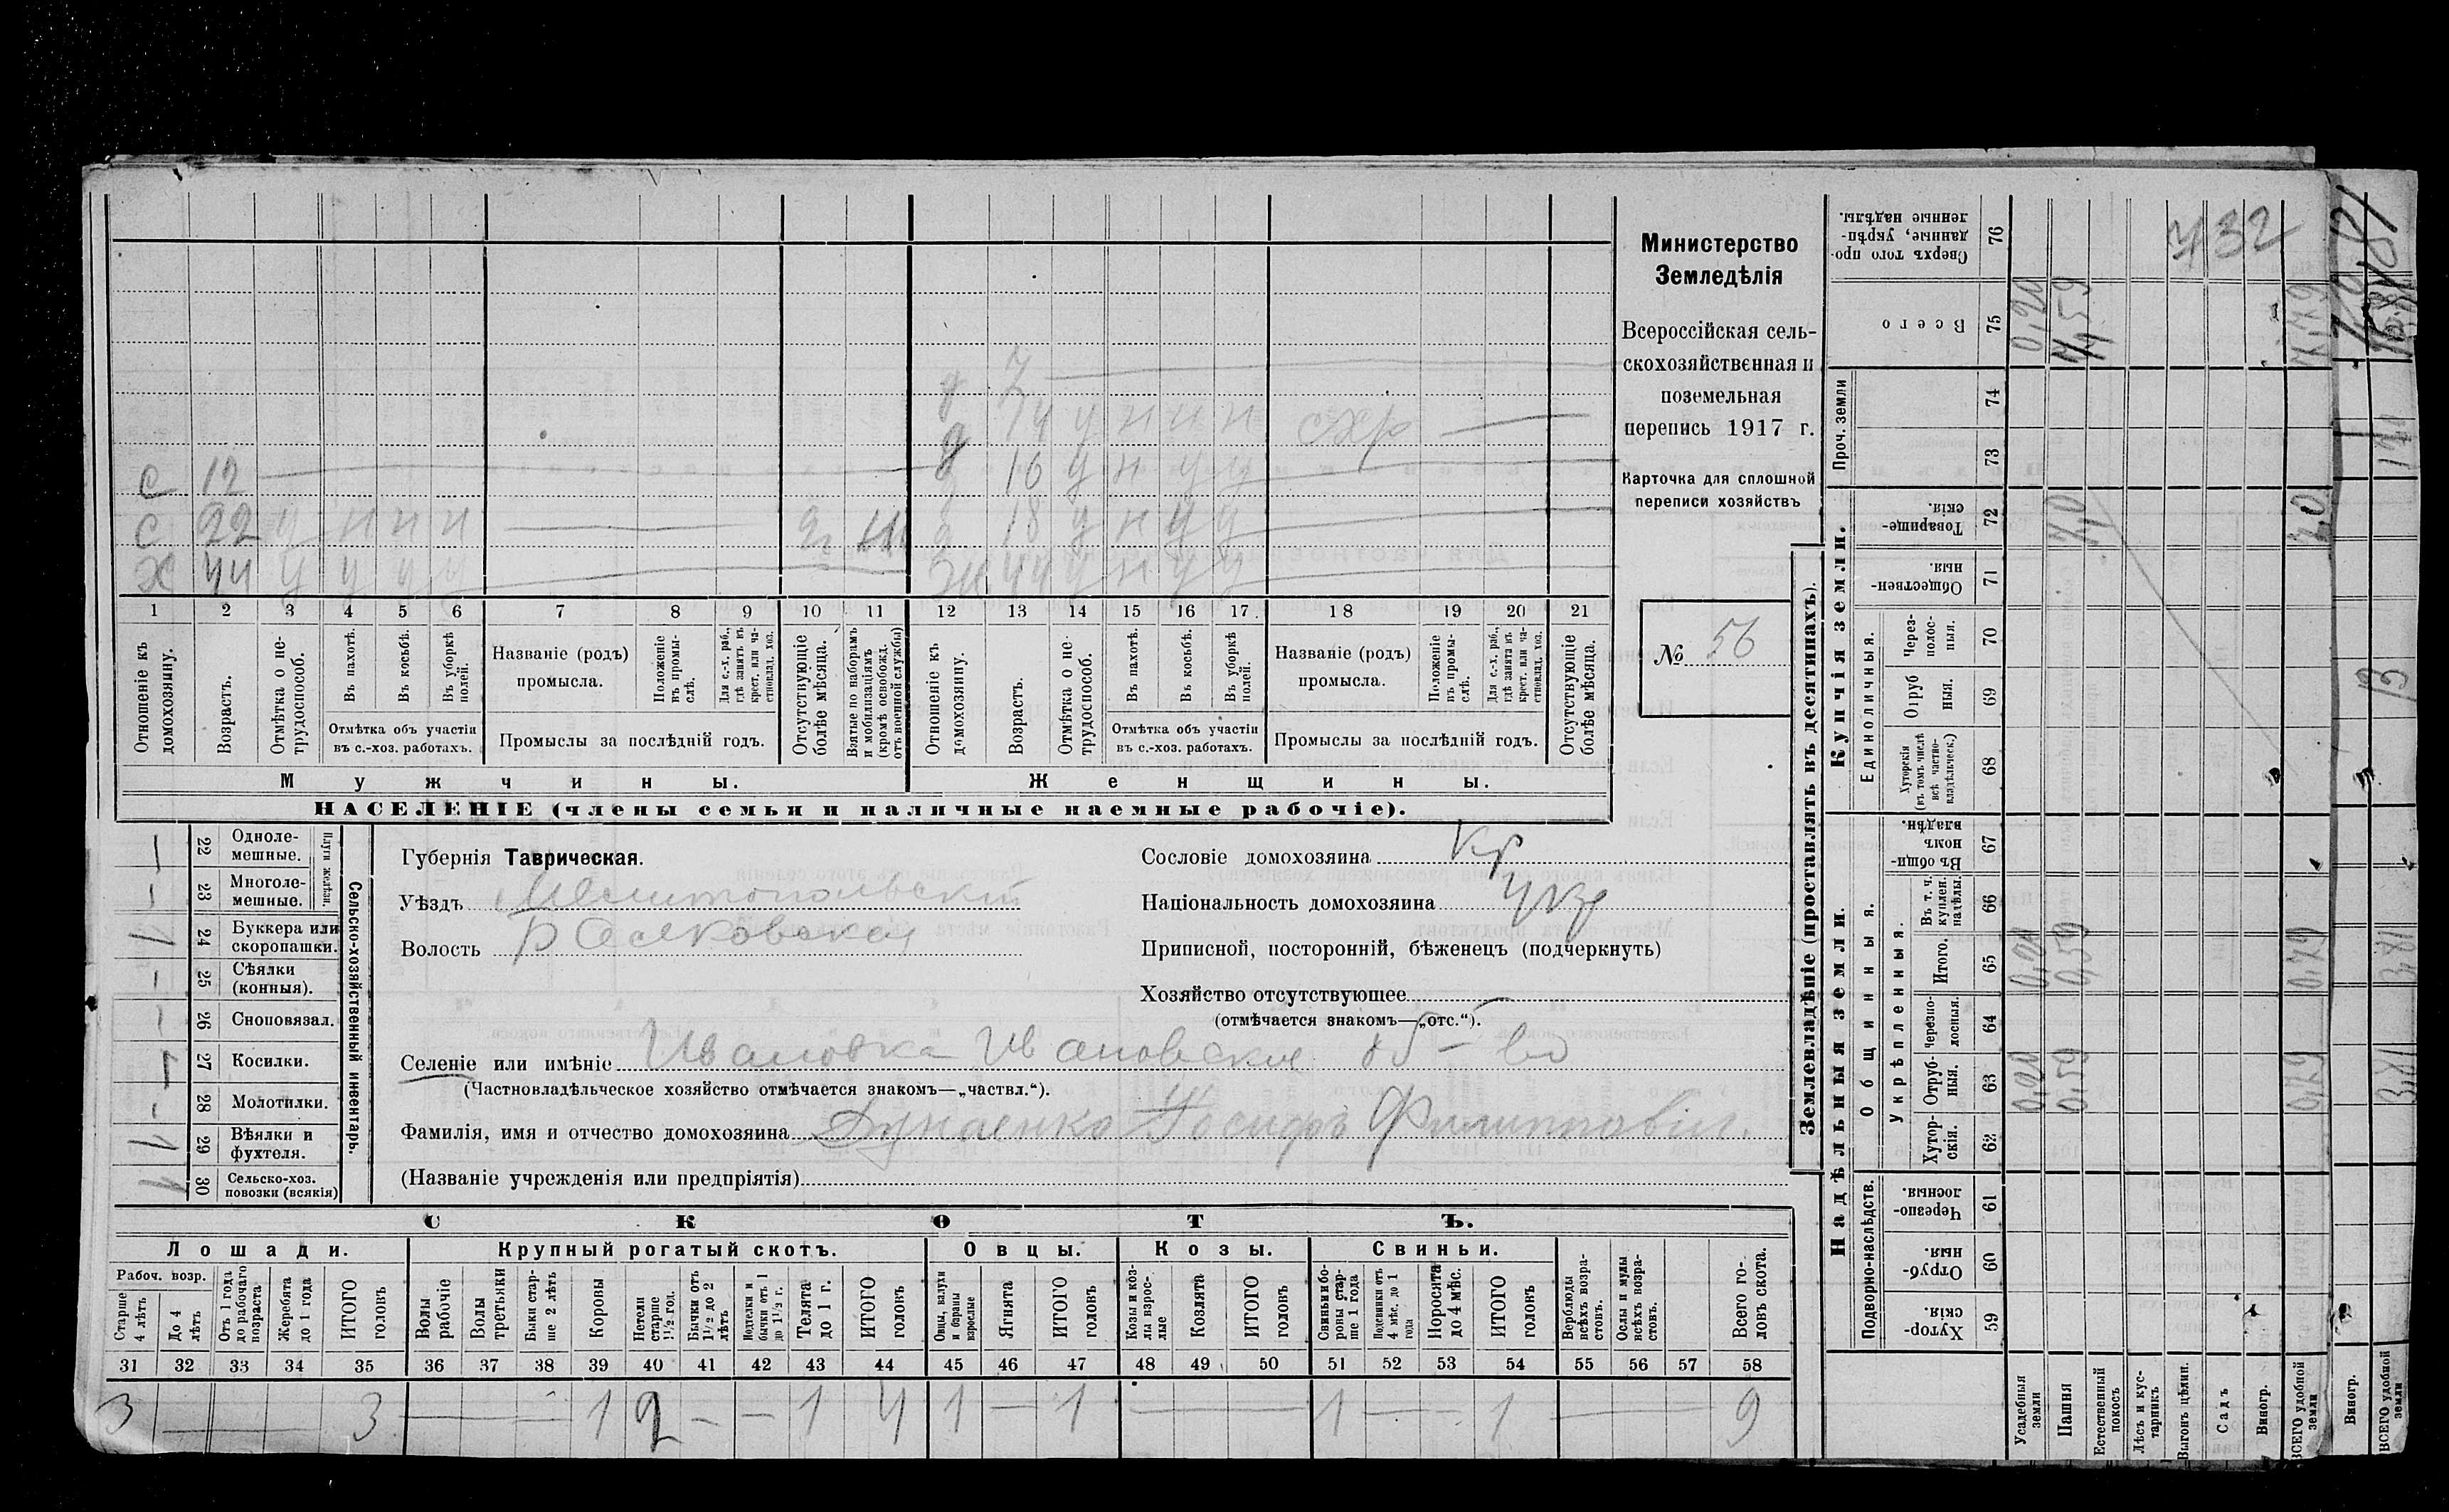 Министерство
Земледѣлія
Всероссійская сель-
скохозяйственная и
поземельная
перепись 1917 г.
Карточка для сплошной
переписи хозяйствъ
№ 56
д 7
д 14 у н н н схр —
с 12 — д 16 у н у у
с 22 у н н н — д 18 у н у у
х 44 у у у у — ж 44 у н у у
1 2 3 4 5 6 7 8 9 10 11 12 13 14 15 16 17 18 19 20 21
Отношеніе къ домохозяину.
Возрастъ.
Отмѣтка о не-трудоспособ.
Въ пахотѣ.
Въ косьбѣ.
Въ уборкѣ полей.
Отмѣтка объ участіи
въ с.-хоз. работахъ.
Названіе (родъ)
промысла.
Положеніе въ промы-слѣ.
Для с.-х. раб., гдѣ занятъ въ крест. или ча-стновлад. хоз.
Промыслы за послѣдній годъ.
Отсутствующіе болѣе мѣсяца.
Взятые по наборамъ и мобилизаціямъ (кромѣ освобожд. отъ военной службы)
Отношеніе къ домохозяину.
Возрастъ.
Отмѣтка о не-трудоспособ.
Въ пахотѣ.
Въ косьбѣ.
Въ уборкѣ полей.
Отмѣтка объ участіи
въ с.-хоз. работахъ.
Названіе (родъ)
промысла.
Положеніе въ промы-слѣ.
Для с.-х. раб., гдѣ занята въ крест. или ча-стновлад. хоз.
Промыслы за послѣдній годъ.
Отсутствующіе болѣе мѣсяца.
Мужчины. Женщины.
НАСЕЛЕНІЕ (члены семьи и наличные наемные рабочіе).
Сельско-хозяйственный инвентарь.
Плуги желѣзн.
— 22 Одноле-мешные.
— 23 Многоле-мешные.
1 24 Буккера или скоропашки.
— 25 Сѣялки (конныя).
— 26 Сноповязал.
27 Косилки.
— 28 Молотилки.
1 29 Вѣялки и фухтеля.
30 Сельско-хоз. повозки (всякія)
Губернія Таврическая.
Уѣздъ Мелитопольскій
Волость
Сословіе домохозяина кр
Національность домохозяина укр
Приписной, посторонній, бѣженецъ (подчеркнуть)
Хозяйство отсутствующее —
(отмѣчается знакомъ—„отс.“).
Селеніе или имѣніе Ивановка Ивановское об-во
(Частновладѣльческое хозяйство отмѣчается знакомъ—„частвл.“).
Фамилія, имя и отчество домохозяина Іосифъ Филиппович.
(Названіе учрежденія или предпріятія)
СКОТЪ.
Лошади. Крупный рогатый скотъ. Овцы. Козы. Свиньи.
Рабоч. возр.
Старше 4 лѣтъ
До 4 лѣтъ
Отъ 1 года до рабочаго возраста
Жеребята до 1 года
ИТОГО головъ
Волы рабочіе
Волы третьяки
Быки стар-ше 2 лѣтъ
Коровы
Нетели старше 1½ год.
Бычки отъ 1½ до 2 лѣтъ
Подтелки и бычки отъ 1 до 1½ г.
Телята до 1 г.
ИТОГО головъ
Овцы, валухи и бараны взрослые
Ягнята
ИТОГО головъ
Козы и коз-лы взрос-лые
Козлята
ИТОГО головъ
Свиньи и бо-ровы стар-ше 1 года
Подсвинки отъ 4 мѣс. до 1 года
Поросята до 4 мѣс.
ИТОГО головъ
Верблюды всѣхъ возра-стовъ.
Ослы и мулы всѣхъ возра-стовъ.
Всего го-ловъ скота.
31 32 33 34 35 36 37 38 39 40 41 42 43 44 45 46 47 48 49 50 51 52 53 54 55 56 57 58
3 — 3 — — 1 2 — — 1 4 1 — 1 — 1 — 1 — 9
Землевладѣніе (проставлять въ десятинахъ).
Надѣльныя земли. Купчія земли.
Подворно-наслѣдств.
Общинныя.
Укрѣпленныя.
Единоличныя.
Проч. земли
Хутор-скія. 59
Отруб-ныя. 60
Черезпо-лосныя. 61
Хутор-скія. 62
Отруб-ныя. 63
Черезпо-лосныя. 64
Итого. 65
Въ т. ч. куплен. надѣлы. 66
Въ общи-номъ владѣн. 67
Хуторскія (въ томъ числѣ всѣ частно-владѣльческ.) 68
Отруб-ныя. 69
Через-полос-ныя. 70
Обществен-ныя. 71
Товарище-скія. 72
73
74
Всего 75
Сверхъ того про-данные, укрѣп-ленные надѣлы. 76
Усадебныя земли 0,20 0,20 0,20
Пашня 0,59 0,59
Естественный покосъ
Лѣсъ и кус-тарникъ
Выгонъ цѣлин.
Садъ
Виногр.
ВСЕГО удобной земли 0,79 0,79
732
Виногр.
ВСЕГО удобной земли
13